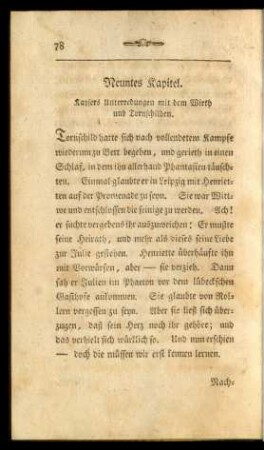 78
Neuntes Kapitel.
Kaysers Unterredungen mit dem Wirth
und Tornschilden.
Tornschild hatte sich nach vollendetem Kampfe
wiederum zu Bett begeben, und gerieth in einen
Schlaf, in dem ihn allerhand Phantasien täusch-
ten. Einmal glaubte er in Leipzig mit Henriet-
ten auf der Promenade zu seyn. Sie war Witt-
we und entschlossen die seinige zu werden. Ach!
er suchte vergebens ihr auszuweichen; Er mußte
seine Heirath, und mehr als dieses seine Liebe
zur Julie gestehen. Henriette überhäufte ihn
mit Vorwürfen, aber — sie verzieh. Dann
sah er Julien im Phaeton vor dem lübeckschen
Gasthofe ankommen. Sie glaubte von Rol-
lern vergessen zu seyn. Aber sie ließ sich über-
zeugen, daß sein Herz noch ihr gehöre; und
das verhielt sich würklich so. Und nun erschien
— doch die müssen wir erst kennen lernen.
Nach-